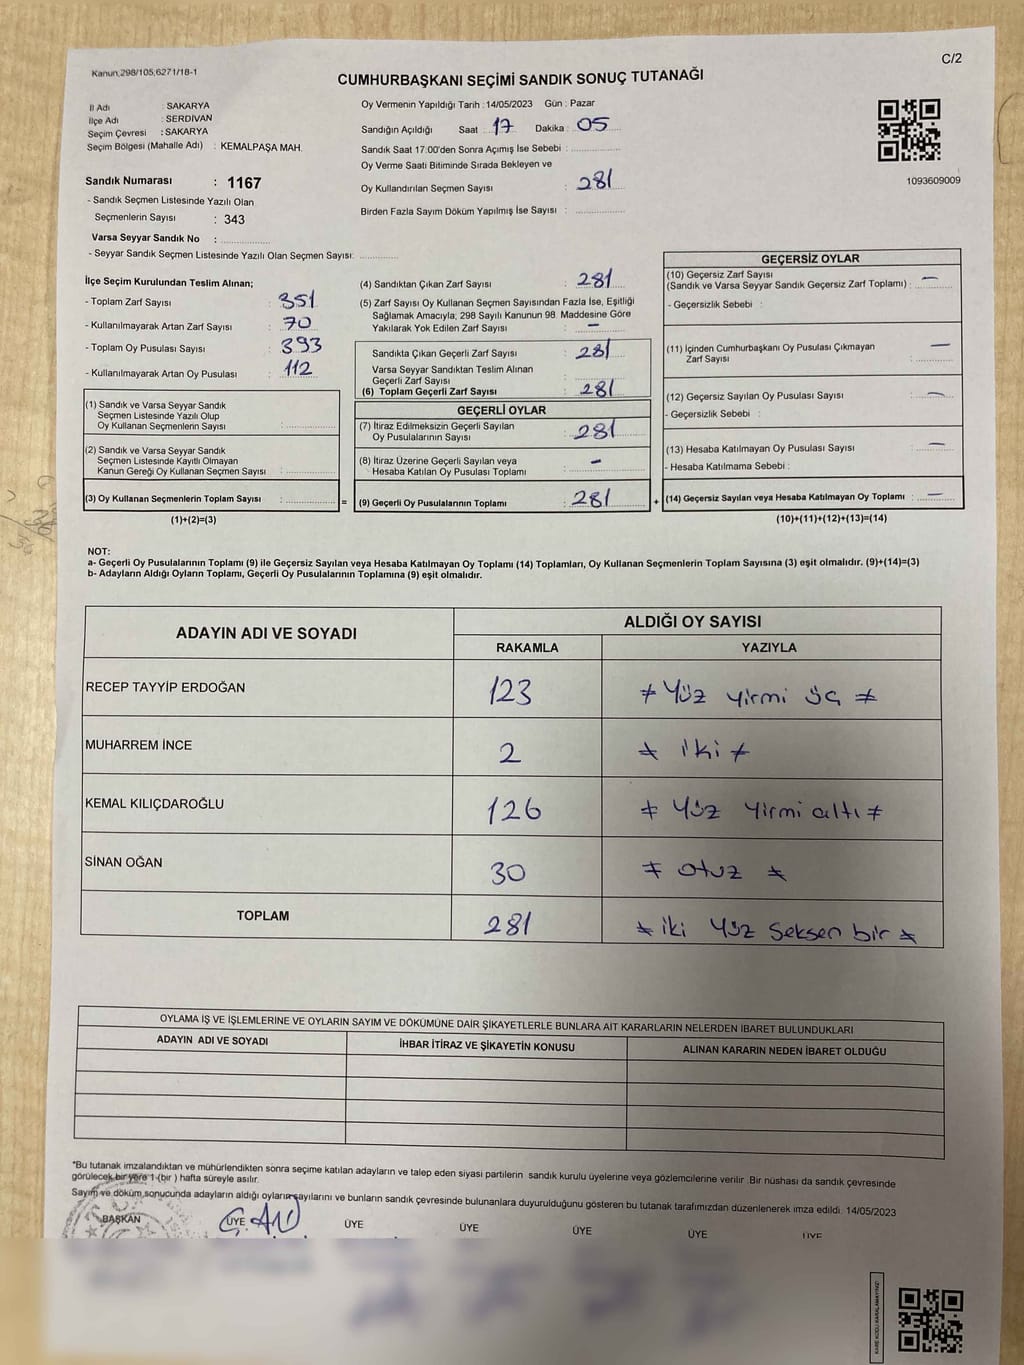 Kanun,298/105,6271/18-1
C/2
CUMHURBAŞKANI SEÇİMİ SANDIK SONUÇ TUTANAĞI
İl Adı : SAKARYA
İlçe Adı : SERDİVAN
Seçim Çevresi : SAKARYA
Seçim Bölgesi (Mahalle Adı) : KEMALPAŞA MAH.
Sandık Numarası : 1167
- Sandık Seçmen Listesinde Yazılı Olan
Seçmenlerin Sayısı : 343
Varsa Seyyar Sandık No :
- Seyyar Sandık Seçmen Listesinde Yazılı Olan Seçmen Sayısı:
Oy Vermenin Yapıldığı Tarih : 14/05/2023 Gün : Pazar
Sandığın Açıldığı Saat 17 Dakika : 05
Sandık Saat 17:00'den Sonra Açımış İse Sebebi :
Oy Verme Saati Bitiminde Sırada Bekleyen ve
Oy Kullandırılan Seçmen Sayısı : 281
Birden Fazla Sayım Döküm Yapılmış İse Sayısı :
1093609009
İlçe Seçim Kurulundan Teslim Alınan;
- Toplam Zarf Sayısı : 351
- Kullanılmayarak Artan Zarf Sayısı : 70
- Toplam Oy Pusulası Sayısı : 393
- Kullanılmayarak Artan Oy Pusulası : 112
(1) Sandık ve Varsa Seyyar Sandık
Seçmen Listesinde Yazılı Olup
Oy Kullanan Seçmenlerin Sayısı :
(2) Sandık ve Varsa Seyyar Sandık
Seçmen Listesinde Kayıtlı Olmayan
Kanun Gereği Oy Kullanan Seçmen Sayısı :
(3) Oy Kullanan Seçmenlerin Toplam Sayısı :
(1)+(2)=(3)
=
(4) Sandıktan Çıkan Zarf Sayısı : 281
(5) Zarf Sayısı Oy Kullanan Seçmen Sayısından Fazla İse, Eşitliği
Sağlamak Amacıyla; 298 Sayılı Kanunun 98. Maddesine Göre
Yakılarak Yok Edilen Zarf Sayısı : –
Sandıkta Çıkan Geçerli Zarf Sayısı : 281
Varsa Seyyar Sandıktan Teslim Alınan
Geçerli Zarf Sayısı :
(6) Toplam Geçerli Zarf Sayısı : 281
GEÇERLİ OYLAR
(7) İtiraz Edilmeksizin Geçerli Sayılan
Oy Pusulalarının Sayısı : 281
(8) İtiraz Üzerine Geçerli Sayılan veya
Hesaba Katılan Oy Pusulası Toplamı : –
(9) Geçerli Oy Pusulalarının Toplamı : 281
+
GEÇERSİZ OYLAR
(10) Geçersiz Zarf Sayısı
(Sandık ve Varsa Seyyar Sandık Geçersiz Zarf Toplamı) : –
- Geçersizlik Sebebi :
(11) İçinden Cumhurbaşkanı Oy Pusulası Çıkmayan
Zarf Sayısı : –
(12) Geçersiz Sayılan Oy Pusulası Sayısı : –
- Geçersizlik Sebebi :
(13) Hesaba Katılmayan Oy Pusulası Sayısı : –
- Hesaba Katılmama Sebebi :
(14) Geçersiz Sayılan veya Hesaba Katılmayan Oy Toplamı : –
(10)+(11)+(12)+(13)=(14)
NOT:
a- Geçerli Oy Pusulalarının Toplamı (9) ile Geçersiz Sayılan veya Hesaba Katılmayan Oy Toplamı (14) Toplamları, Oy Kullanan Seçmenlerin Toplam Sayısına (3) eşit olmalıdır. (9)+(14)=(3)
b- Adayların Aldığı Oyların Toplamı, Geçerli Oy Pusulalarının Toplamına (9) eşit olmalıdır.
ADAYIN ADI VE SOYADI
ALDIĞI OY SAYISI
RAKAMLA YAZIYLA
RECEP TAYYİP ERDOĞAN 123 ≠ Yüz yirmi üç ≠
MUHARREM İNCE 2 ≠ iki ≠
KEMAL KILIÇDAROĞLU 126 ≠ Yüz Yirmi altı ≠
SİNAN OĞAN 30 ≠ otuz ≠
TOPLAM 281 ≠ iki Yüz Seksen bir ≠
OYLAMA İŞ VE İŞLEMLERİNE VE OYLARIN SAYIM VE DÖKÜMÜNE DAİR ŞİKAYETLERLE BUNLARA AİT KARARLARIN NELERDEN İBARET BULUNDUKLARI
ADAYIN ADI VE SOYADI İHBAR İTİRAZ VE ŞİKAYETİN KONUSU ALINAN KARARIN NEDEN İBARET OLDUĞU
*Bu tutanak imzalandıktan ve mühürlendikten sonra seçime katılan adayların ve talep eden siyasi partilerin sandık kurulu üyelerine veya gözlemcilerine verilir .Bir nüshası da sandık çevresinde
görülecek bir yere 1 (bir ) hafta süreyle asılır.
Sayım ve döküm sonucunda adayların aldığı oyların sayılarını ve bunların sandık çevresinde bulunanlara duyurulduğunu gösteren bu tutanak tarafımızdan düzenlenerek imza edildi. 14/05/2023
BAŞKAN ÜYE ÜYE ÜYE ÜYE ÜYE ÜYE
KARE KODU KARALAMAYINIZ!